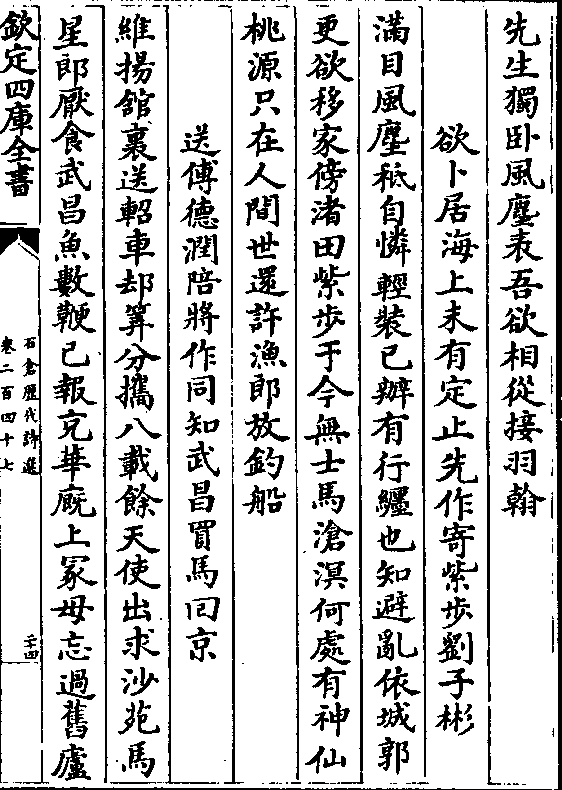 先生獨卧風塵表吾欲相從接羽翰
欲卜居海上未有定止先作寄紫步劉子彬
滿目風塵秪自憐輕裝已辦有行纏也知避亂依城郭
更欲移家傍渚田紫步于今無士馬滄溟何處有神仙
桃源只在人間世還許漁郎放釣船
送傅德潤陪將作同知武昌買馬回京
維揚舘裏送軺車却筭分攜八載餘天使出求沙苑馬
星郎厭食武昌魚數鞭已報充華廐上冢毋忘過舊廬
欽定四庫全書
石倉歷代詩選
卷二百四十七
二十四